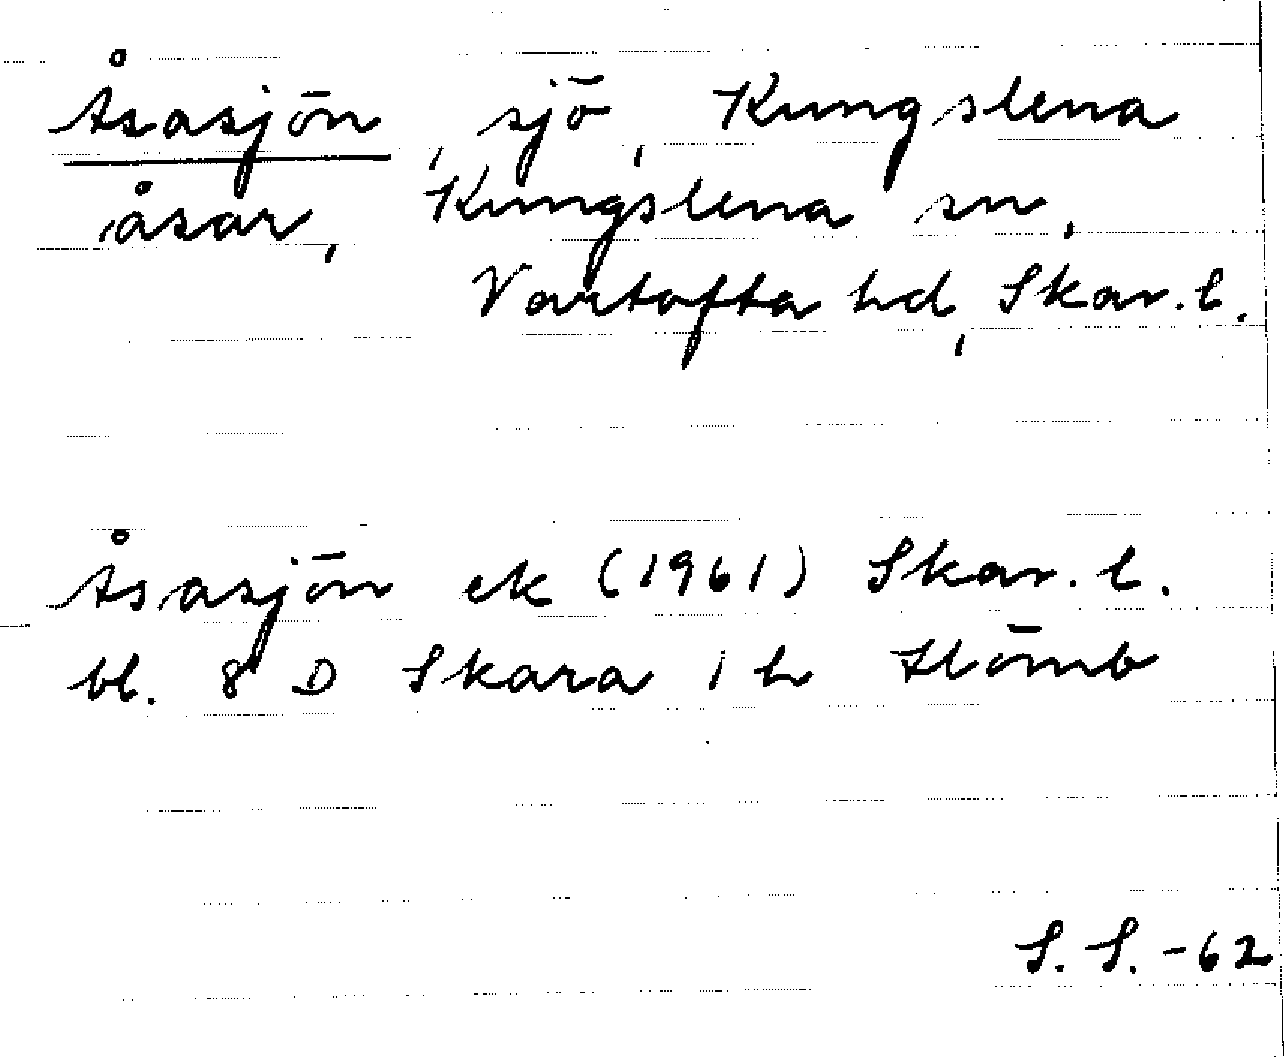 Åsasjön, sjö, Kungslena
åsar, Kungslena sn,
Vartofta hd, Skar. l.
Åsasjön ek (1961) Skar. l.
bl. 8 D Skara 1 h Hömb
S. S. -62